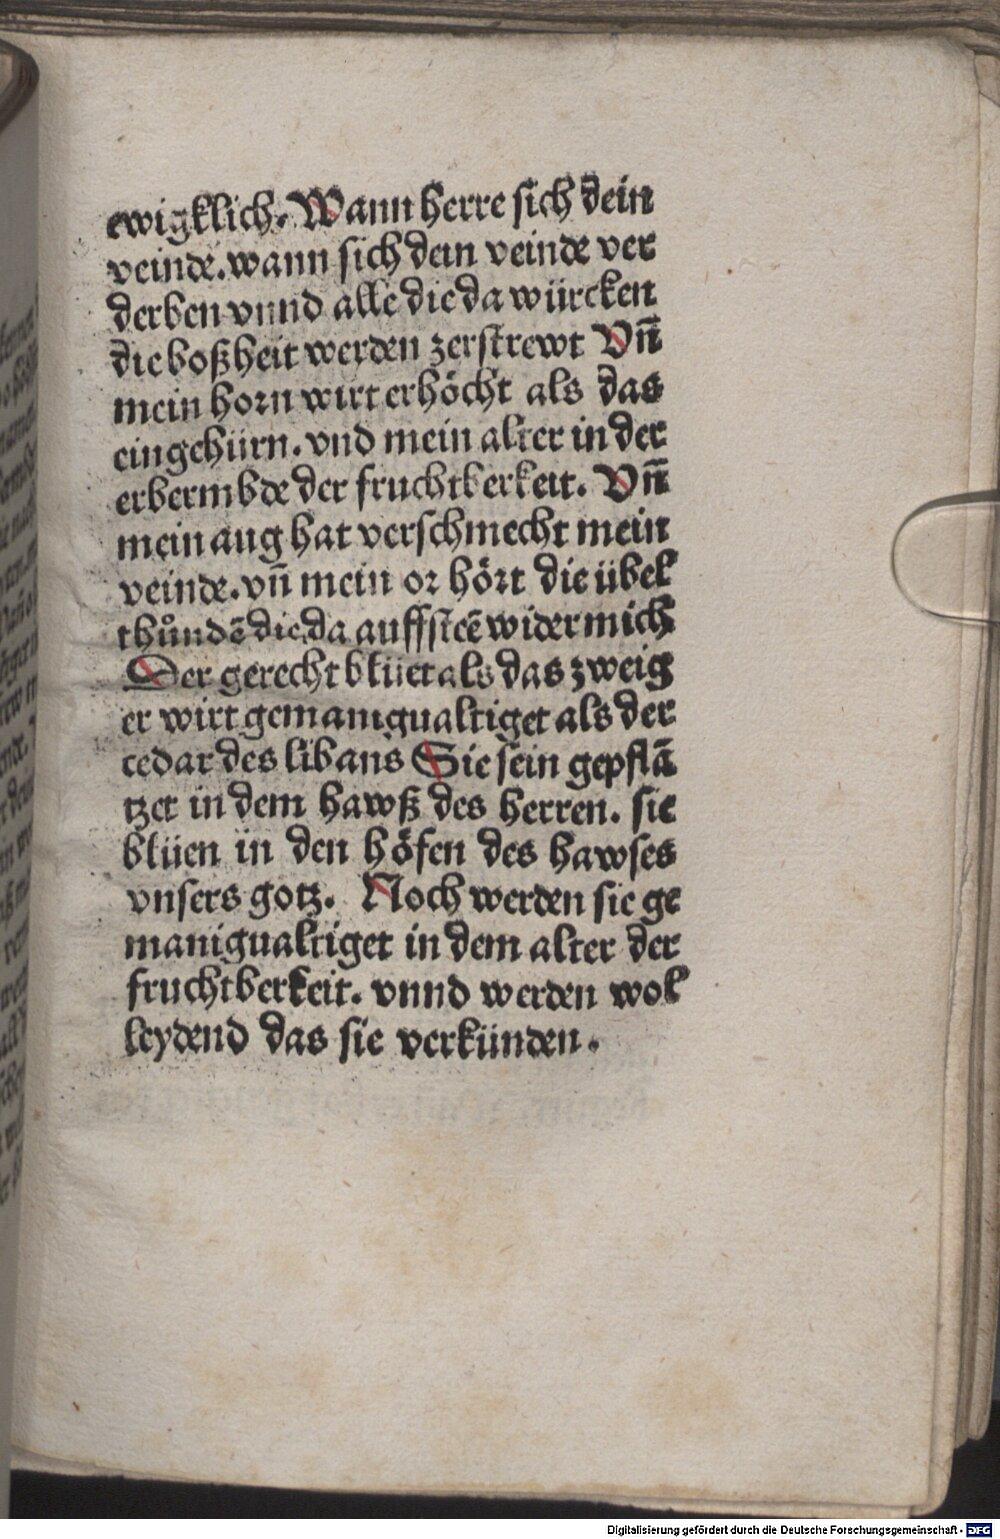 ewigklich. Wann herre sich dein
veinde. wann sich dein veinde ver
derben vnnd alle die da würcken
die boßheit werden zerstrewt Vn̄
mein horn wirt erhöcht als das
eingehürn. vnd mein alter in der
erbermbde der fruchtberkeit. Vn̄
mein aug hat verschmecht mein
veinde. vn̄ mein or hört die übel
thůndē die da auffsteē wider mich
Der gerecht blüet als das zweig
er wirt gemanigualtiget als der
cedar des libans Sie sein gepflā
tzet in dem hawß des herren. sie
blüen in den höfen des hawses
vnsers gotz. Noch werden sie ge
manigualtiget in dem alter der
fruchtberkeit. vnnd werden wol
leydend das sie verkünden.
Digitalisierung gefördert durch die Deutsche Forschungsgemeinschaft - DFG